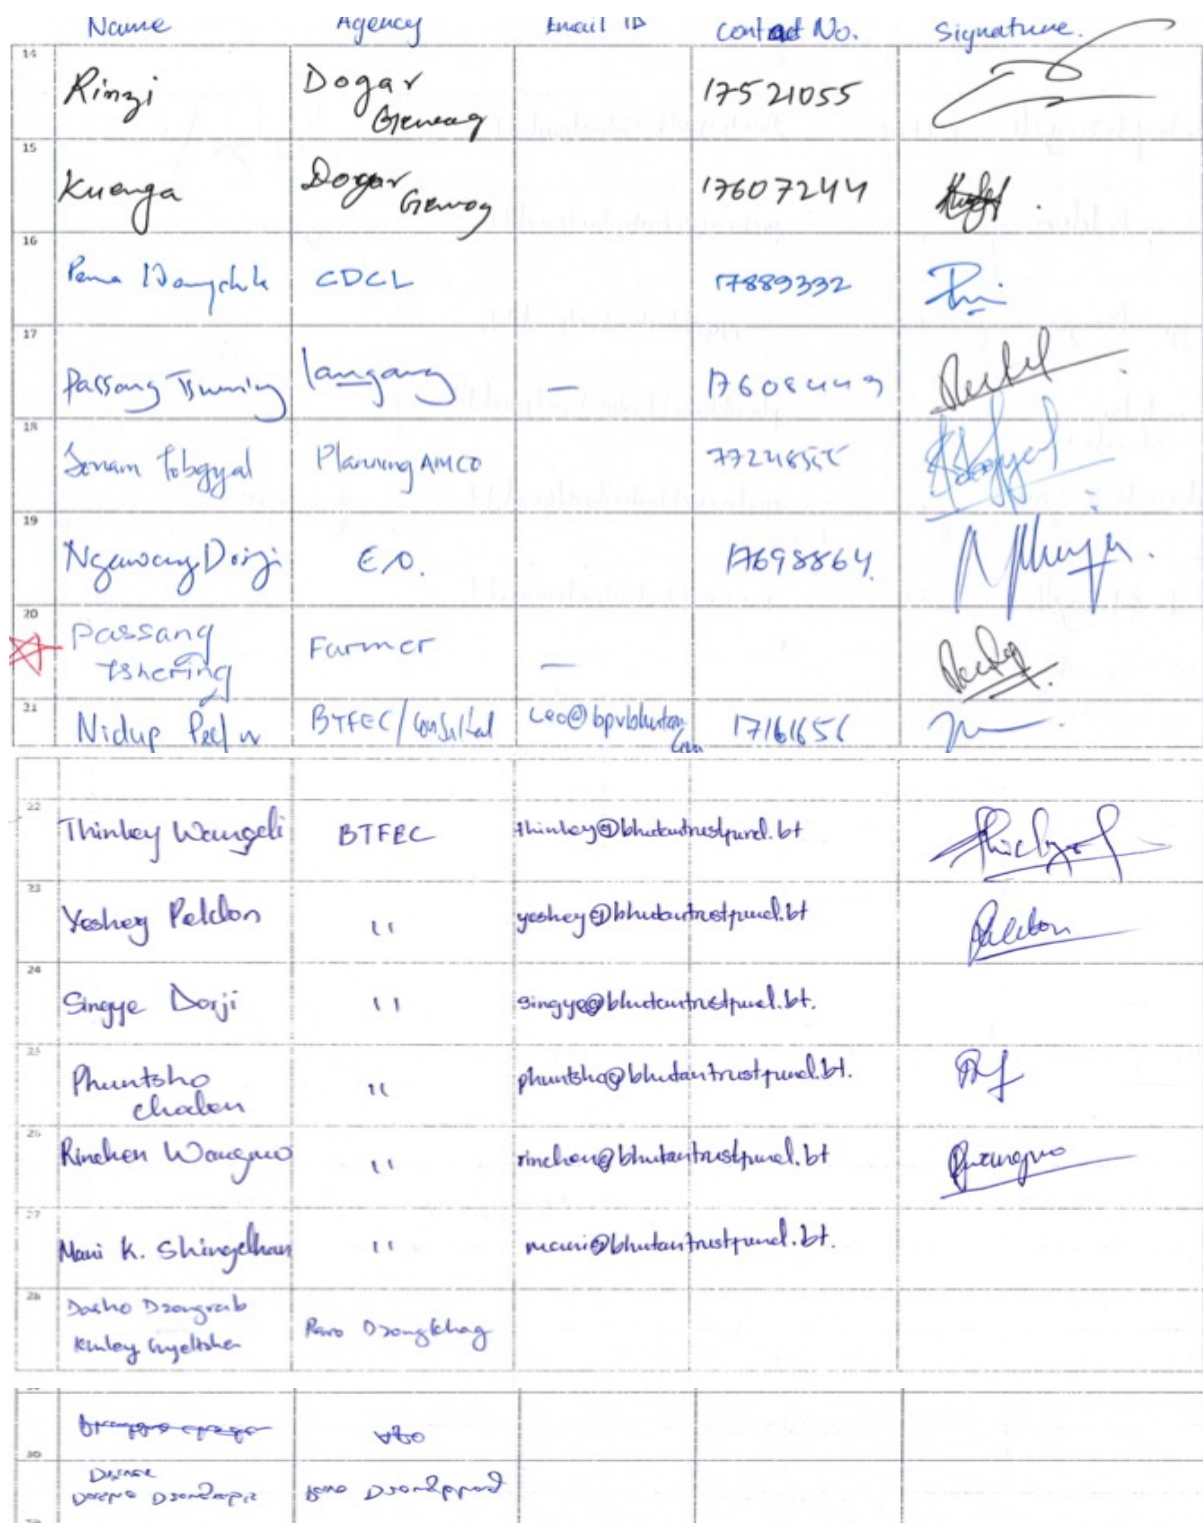 Name Agency Email ID Contact No. Signature.
14
Rinzi Dogar Gewog 17521055
15
Kuenga Dogar Gewog 17607244
16
Pema Wangchuk CDCL 17889332
17
Passang Tshering langang — 17608449
18
Sonam Tobgyal Planning AMCO
19
Ngawang Dorji E.O. 17698864
20
Passang Tshering Farmer —
21
Nidup BTFEC/ 17161656
22
Thinley Wangdi BTFEC thinley@bhutantrustfund.bt
23
Yeshey Peldon " yeshey@bhutantrustfund.bt Peldon
24
Singye Dorji " singye@bhutantrustfund.bt.
25
Phuntsho Choden " phuntsho@bhutantrustfund.bt.
26
Rinchen Wangmo " rinchen@bhutantrustfund.bt
27
Mani K. " mani@bhutantrustfund.bt.
28
Dasho Dzongrab
Kinley Gyeltshen Paro Dzongkhag
30